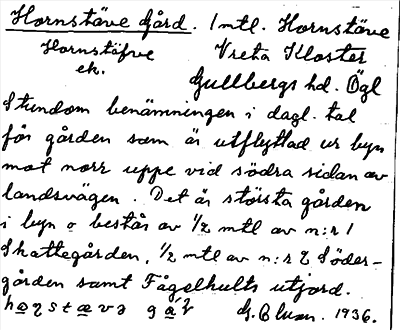 Hornstäve Gård. 1 mtl. Hornstäve
Hornstäfve Vreta Kloster
ek. Gullbergs hd. Ögl
Stundom benämningen i dagl. tal
för gården som är utflyttad ur byn
mot norr uppe vid södra sidan av
landsvägen. Det är största gården
i byn o består av 1/2 mtl av n:r 1
Skattegården, 1/2 mtl av n:r 2 Söder-
gården samt Fågelhults utjord.
G. 1936.